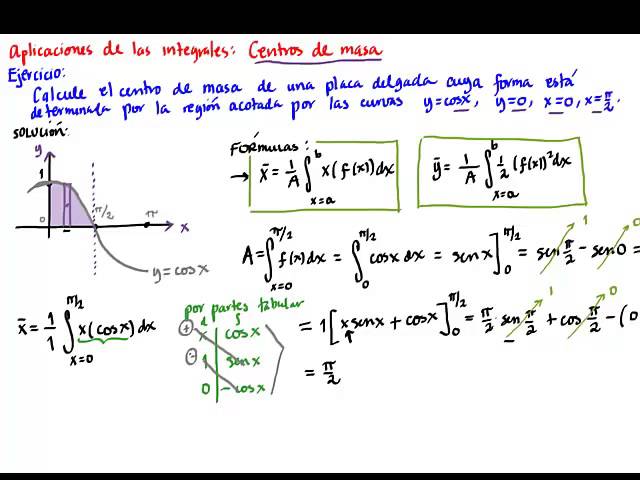 Aplicaciones de las integrales: Centros de masa
Ejercicio:
Calcule el centro de masa de una placa delgada cuya forma está
determinada por la región acotada por las curvas y=cosx, y=0, x=0, x=π/2.
SOLUCIÓN:
FÓRMULAS:
→ x̄ = 1/A ∫_{x=a}^{b} x(f(x))dx
ȳ = 1/A ∫_{x=a}^{b} 1/2 (f(x))² dx
y
1
0
π/2
π
x
y=cosx
A = ∫_{x=0}^{π/2} f(x)dx = ∫_{0}^{π/2} cosx dx = senx]_{0}^{π/2} = sen π/2 - sen 0 =
1
0
x̄ = 1/1 ∫_{x=0}^{π/2} x(cosx)dx
por partes tabular
d
+ x cosx
- 1 senx
0 -cosx
= 1[x senx + cosx]_{0}^{π/2} = π/2 sen π/2 + cos π/2 - (0
1
0
= π/2